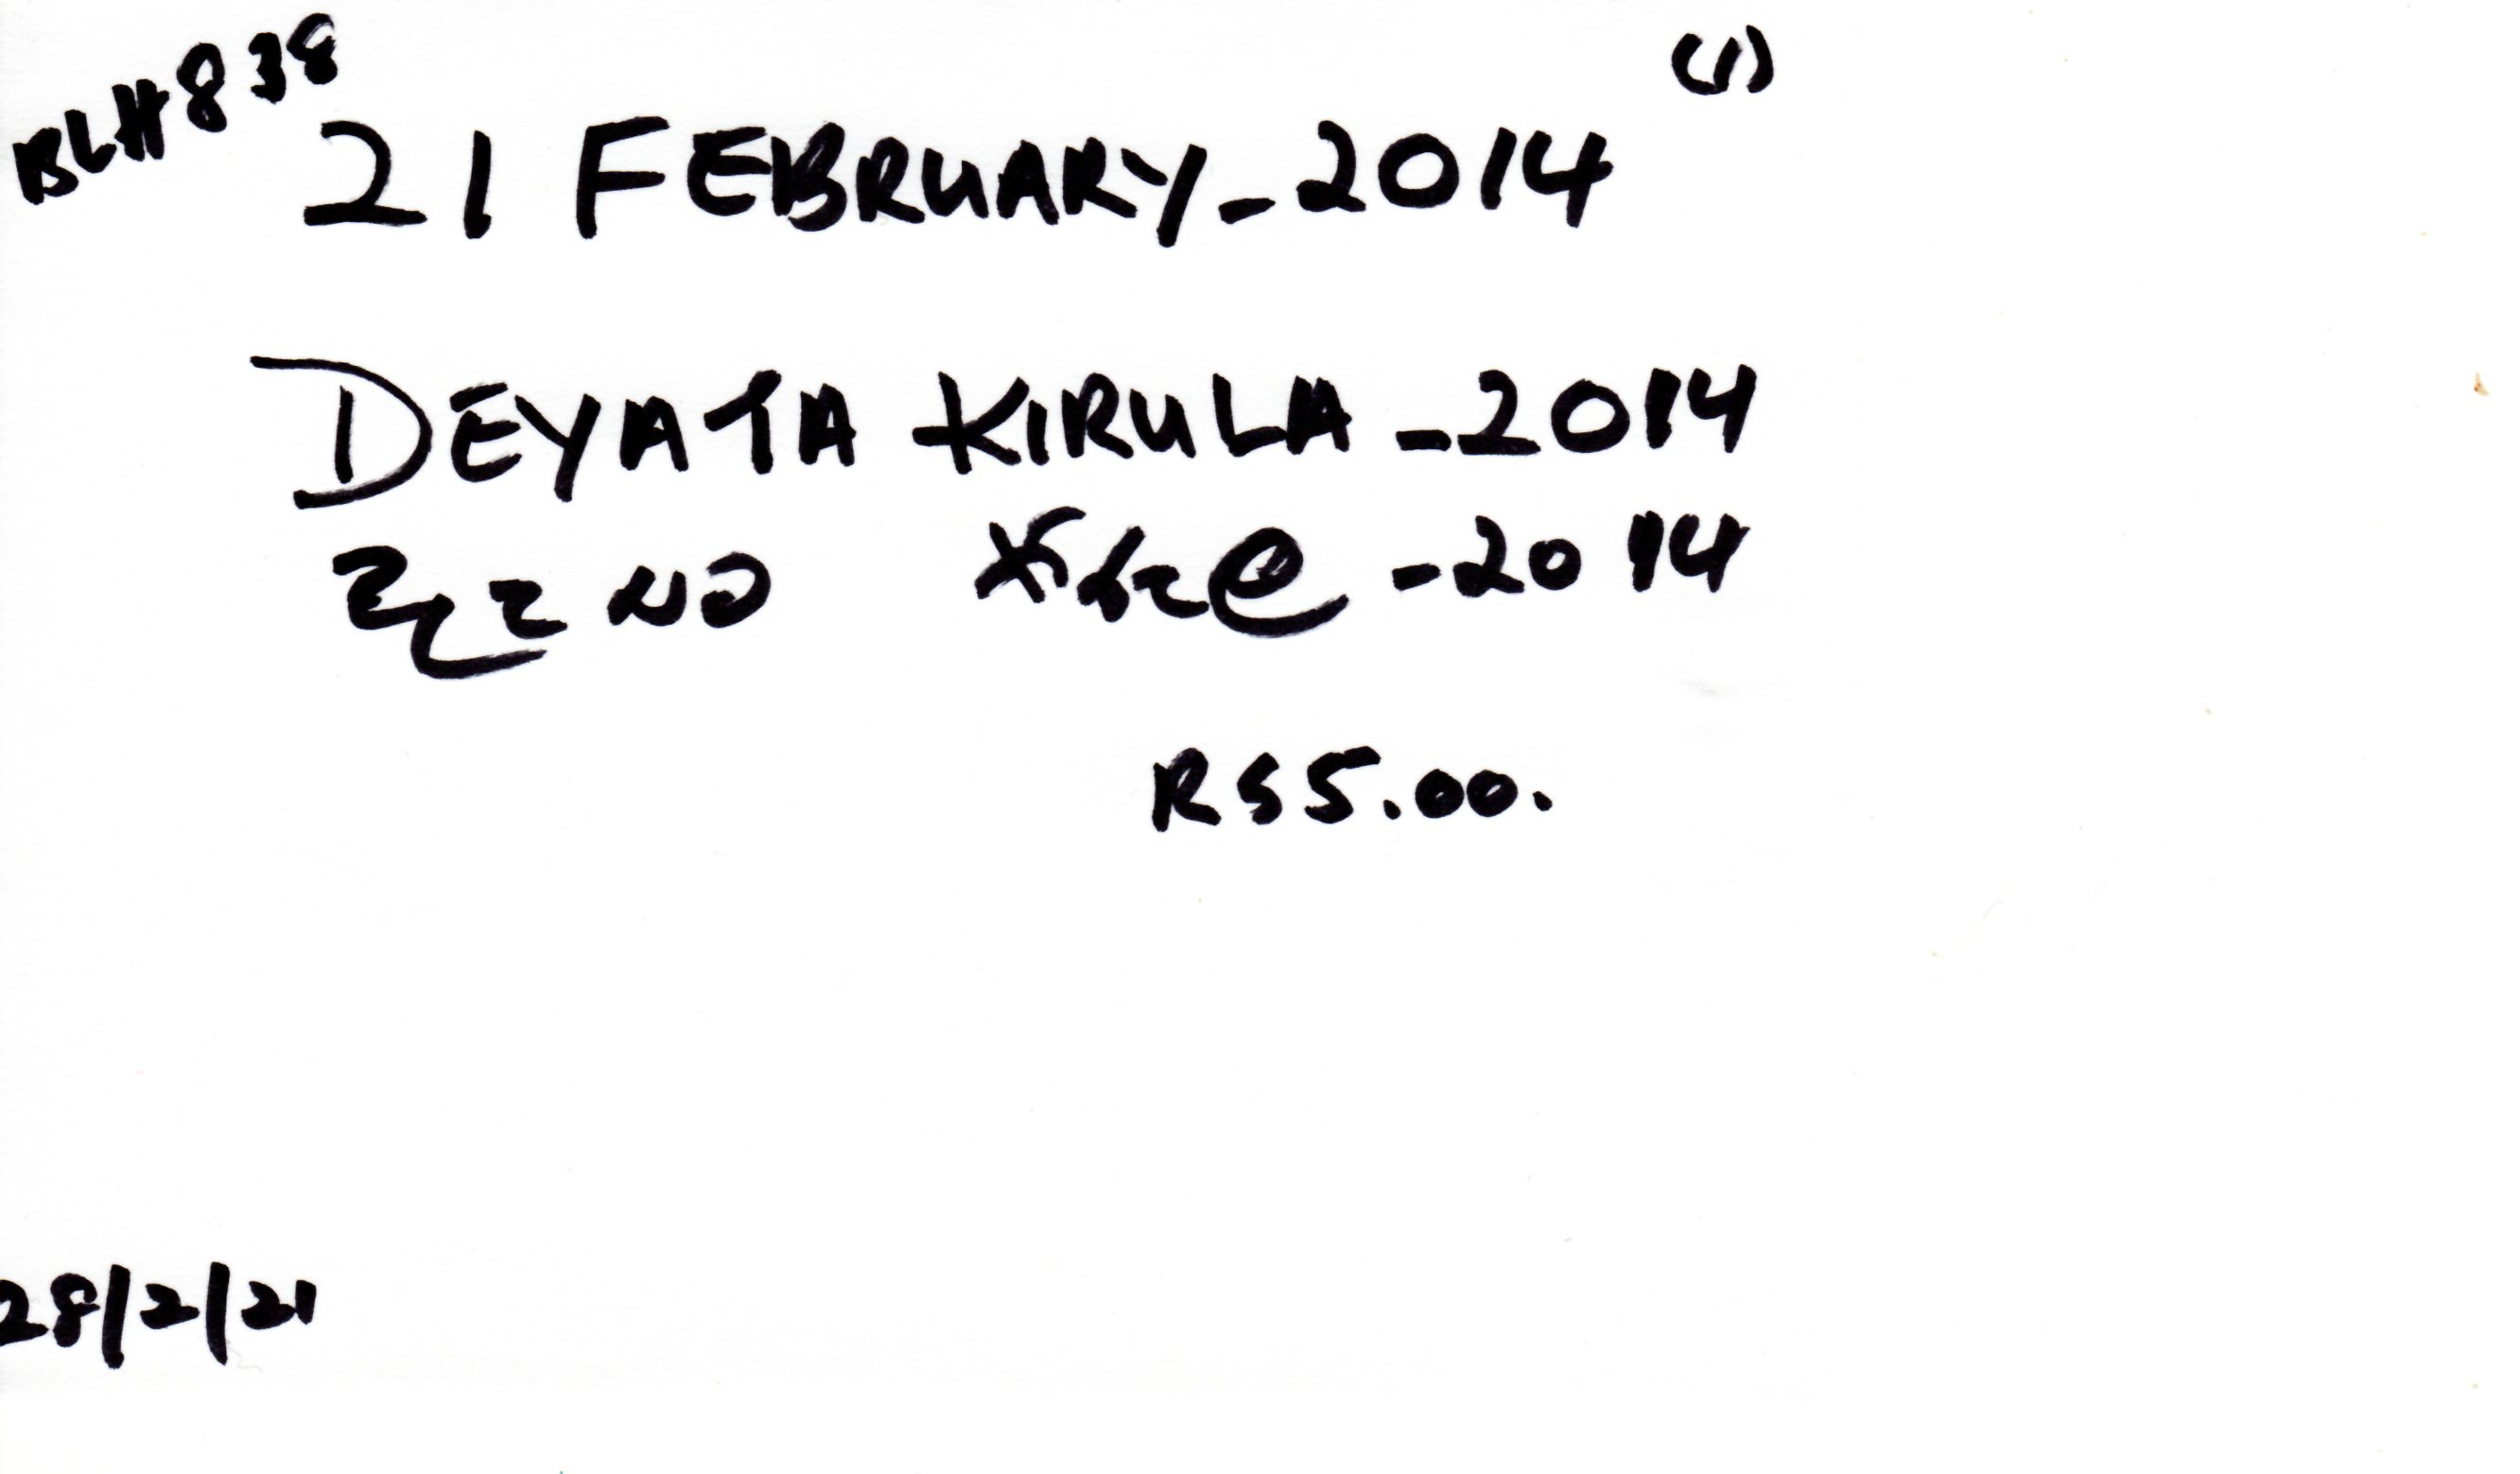 BLH838
(1)
21 FEBRUARY-2014
DEYATA KIRULA-2014
දැයට කිරුළ -2014
RS5.00.
28/2/21